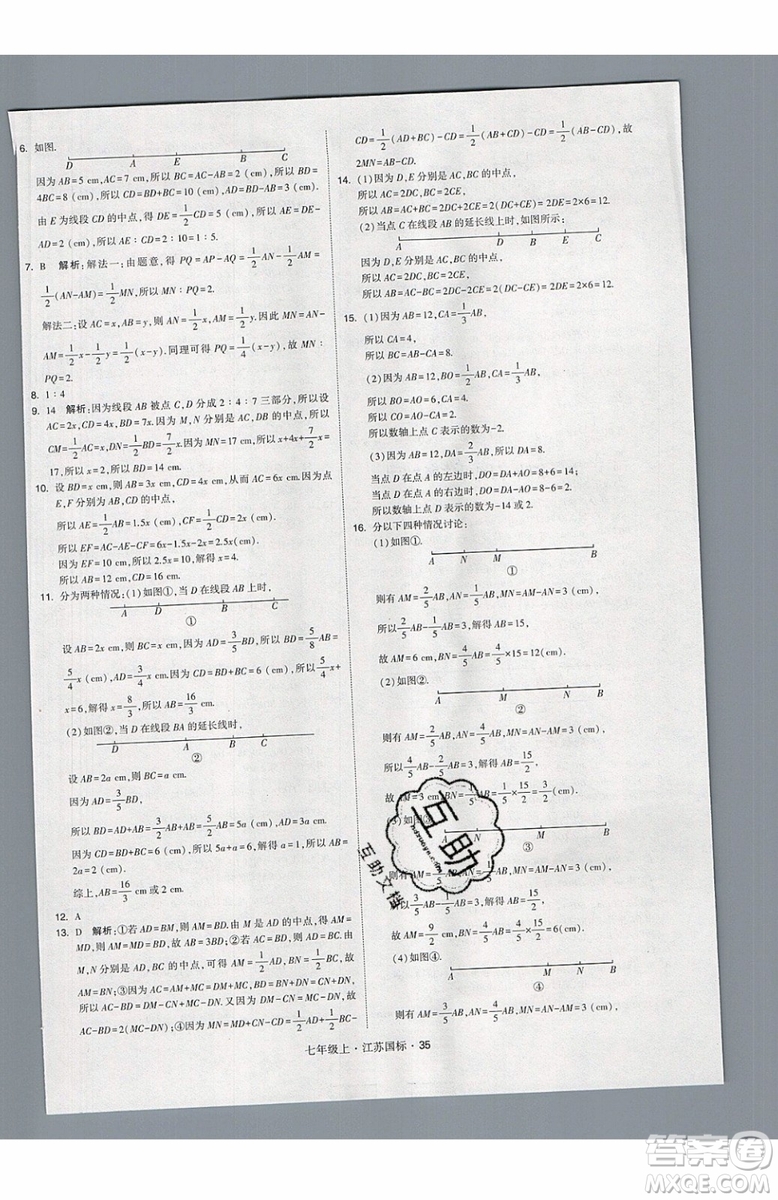 6. 如图.
D A E B C
因为 AB=5 cm,AC=7 cm,所以 BC=AC-AB=2 cm,所以 BD=
4BC=8 (cm),所以 CD=BD+BC=10 (cm),AD=BD-AB=3 (cm).
由 E 为线段 CD 的中点,得 DE=1/2CD=5 (cm),所以 AE=DE-
AD=2 (cm),所以 AE∶CD=2∶10=1∶5.
7. B 解析:解法一:由题意,得 PQ=AP-AQ=1/2AN-1/2AM=
1/2(AN-AM)=1/2MN,所以 MN∶PQ=2.
解法二:设 AC=x,AM=y,所以 AN=1/2x,AM=1/2y. 因此 MN=
AM=1/2x-1/2y=1/2(x-y).同理可得 PQ=1/2(x-y).所以 MN∶
PQ=2.
8. 1∶4
9. 14 解析:因为线段 AB 被点 C,D 分成 2∶4∶7 三部分,所以设
AC=2x,CD=4x,BD=7x.因为 M,N 分别是 AC,DB 的中点,所以
CM=1/2AC=x,DN=1/2BD=7/2x.因为 MN=17 cm,所以 x+4x+7/2x=
17,解得 x=2,所以 BD=14 cm.
10. 设 BD=x cm,则 AB=3x cm,CD=4x cm,从而 AC=6x cm.因为点
E,F 分别为 AB,CD 的中点,
所以 AE=1/2AB=1.5x (cm),CF=1/2CD=2x (cm),
所以 EF=AC-AE-CF=6x-1.5x-2x=2.5x (cm).
因为 EF=10 cm,所以 2.5x=10,解得 x=4.
所以 AB=12 cm,CD=16 cm.
11. 分为两种情况:(1)如图①,当 D 在线段 AB 上时,
A D B C
①
设 AB=2x cm,则 BC=x cm.因为 AD=3/5BD,所以 BD=5/8AB=
5/4x (cm).因为 CD=BD+BC=6 (cm),所以 5/4x+
x=6,解得 x=8/3,所以 AB=16/3 cm.
(2)如图②,当 D 在线段 BA 的延长线时,
D A B C
②
设 AB=2a cm,则 BC=a cm.
因为 AD=3/5BD,
所以 BD=AD+AB=5/2AB=5/2×2a=5a (cm),
因为 CD=BD+BC=6 cm,所以 5a+a=6,解得 a=1,所以 AB=
2a=2 (cm).
综上,AB=16/3 cm或2 cm.
12. A
13. D 解析:①若 AD=BM,则 AM=BD.由 M 是 AD 的中点,得 AM=
MD,则 AM=MD=BD,所以 AB=3BD;②若 AC=BD,则 AD=BC.因为
M,N 分别是 AD,BC 的中点,所以 AM=MD=1/2AD,CN=BN=1/2BC,所以
AM=BN;③因为 AC=AM-MC,BD=BN-DN,
所以 AC-BD=AM-MC-BN+DN.又因为 AM=DM,BN=CN,
所以 AC-BD=DM-MC-CN+DN.又因为 DM-CN=MC-DN,所以
AC-BD=2(MC-DN);④因为 MN=MC-CN=MC-1/2BC,MC=
CD=1/2(AD+BC)-CD=1/2(AB+CD)-CD=1/2(AB-CD),故
2MN=AB-CD.
14. (1)因为 D,E 分别是 AC,BC 的中点,
所以 AC=2DC,BC=2CE,
所以 AB=AC+BC=2DC+2CE=2(DC+CE)=2DE=2×6=12.
(2)当点 C 在线段 AB 的延长线上时,如图所示:
A D B E C
因为 D,E 分别是 AC,BC 的中点,
所以 AC=2DC,BC=2CE.
所以 AB=AC-BC=2DC-2CE=2(DC-CE)=2DE=2×6=12.
15. (1)因为 AB=12,CA=1/3AB,
所以 CA=4,
所以 BC=AB-CA=8.
(2)因为 AB=12,BO=1/2AB,CA=1/3AB,
所以 BO=AO=6,CA=4,
所以 CO=AO-CA=2,
所以数轴上点 C 表示的数为-2.
(3)因为 AB=12,DA=2/3AB,所以 DA=8.
当点 D 在点 A 的左边时,DO=DA+AO=14;
当点 D 在点 A 的右边时,DO=DA-AO=2.
所以数轴上点 D 表示的数为-14或2.
16. 分以下四种情况讨论:
(1)如图①.
A N M B
①
则有 AM=2/5AB,AN=1/5AB,MN=AM-AN=3 (cm),
所以 2/5AB-1/5AB=1/5AB=3,所以 AB=15 cm,
故 AM=6 cm,BN=4/5AB=4/5×15=12 (cm).
(2)如图②.
A M N B
②
则有 AM=2/5AB,AN=4/5AB,MN=AN-AM=3 (cm),
所以 4/5AB-2/5AB=2/5AB=3,所以 AB=15/2 cm,
故 AM=3 cm,BN=1/5AB=1/5×15/2=3/2 (cm).
(3)如图③.
A N M B
③
所以 3/5AB-1/5AB=2/5AB=3,所以 AB=15/2 cm,
故 AM=9/2 cm,BN=4/5AB=4/5×15/2=6 (cm).
(4)如图④.
A M N B
④
则有 AM=3/5AB,AN=4/5AB,MN=AN-AM=3 (cm),
七年级上·江苏国标·35
互助
互助文档
答案圈
MXQE.COM